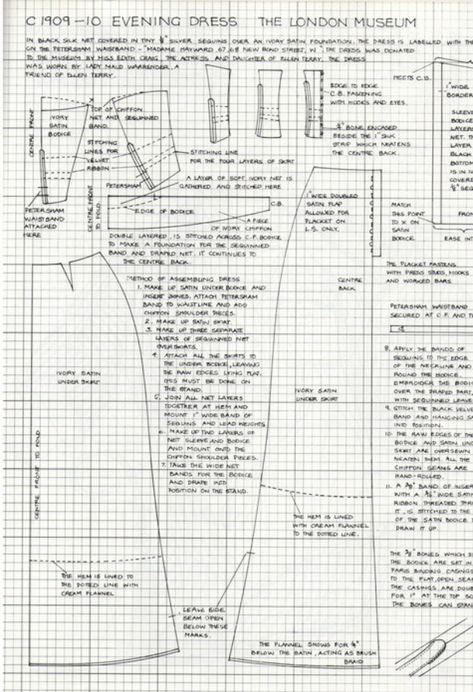 C 1909-10 EVENING DRESS THE LONDON MUSEUM
IN BLACK SILK NET COVERED IN TINY SILVER SEQUINS OVER AN IVORY SATIN FOUNDATION. THE DRESS IS LABELLED WITH TH
ON THE PETERSHAM WAISTBAND - "MADAME HAYWARD, 67,68 NEW BOND STREET, W". THE DRESS WAS DONATED
TO THE MUSEUM BY MISS EDITH CRAIG, THE ACTRESS AND DAUGHTER OF ELLEN TERRY. THE DRESS
WAS WORN BY LADY MAUD WARRENDER, A
FRIEND OF ELLEN TERRY.
MEETS C.B.
1" WIDE
BORDER
CENTRE FRONT
IVORY
SATIN
BODICE
TOP OF CHIFFON
NET AND SEQUINNED
BAND.
STITCHING
LINES FOR
VELVET
RIBBON
PETERSHAM
EDGE TO EDGE
C.B. FASTENING
WITH HOOKS AND EYES.
BONE ENCASED
BESIDE THE 1" SILK
STRIP WHICH NEATENS
THE CENTRE BACK.
STITCHING LINE
FOR THE FOUR LAYERS OF SKIRT
A LAYER OF SOFT IVORY NET IS
GATHERED AND STITCHED HERE
C.B.
PETERSHAM
WAISTBAND
ATTACHED
HERE
CENTRE FRONT
TO FOLD
EDGE OF BODICE
A PIECE
OF IVORY CHIFFON
DOUBLE LAYERED, IS STITCHED ACROSS C.F. BODICE
TO MAKE A FOUNDATION FOR THE SEQUINNED
BAND AND DRAPED NET. IT CONTINUES TO
THE CENTRE BACK.
1" WIDE DOUBLED
SATIN FLAP
ALLOWED FOR
PLACKET ON
L.S. ONLY.
MATCH
THIS POINT
TO X ON
SATIN
BODICE
EASE INT
THE PLACKET FASTENS
WITH PRESS STUDS, HOOKS
AND WORKED BARS.
PETERSHAM WAISTBAND
SECURED AT C.F. AND
METHOD OF ASSEMBLING DRESS
1. MAKE UP SATIN UNDER BODICE AND
INSERT BONES. ATTACH PETERSHAM
BAND TO WAISTLINE AND ADD
CHIFFON SHOULDER PIECES.
2. MAKE UP SATIN SKIRT.
3. MAKE UP THREE SEPARATE
LAYERS OF SEQUINNED NET
OVERSKIRTS.
4. ATTACH ALL THE SKIRTS TO
THE UNDER BODICE, LEAVING
THE RAW EDGES LYING FLAT.
THIS MUST BE DONE ON
THE STAND.
5. JOIN ALL NET LAYERS
TOGETHER AT HEM AND
MOUNT 1" WIDE BAND OF
SEQUINS AND LEAD WEIGHTS.
6. MAKE UP TWO LAYERS OF
NET SLEEVE AND BODICE
AND MOUNT ONTO THE
CHIFFON SHOULDER PIECES.
7. TAKE THE WIDE NET
BANDS FOR THE BODICE
AND DRAPE INTO
POSITION ON THE STAND.
CENTRE
BACK
IVORY SATIN
UNDER SKIRT
IVORY SATIN
UNDER SKIRT
CENTRE FRONT TO FOLD
8. APPLY THE BANDS OF
SEQUINS TO THE EDGE
OF THE NECKLINE AND
ROUND THE BODICE.
EMBROIDER THE BODI
OVER THE DRAPED PART,
WITH SEQUINNED LEAVE
9. STITCH THE BLACK VELV
BAND AND HANGING SA
INTO POSITION.
10. THE RAW EDGES OF THE
BODICE AND SATIN UN
SKIRT ARE OVERSEWN
NEATEN THEM. ALL THE
CHIFFON SEAMS ARE
HAND-ROLLED.
11. A BAND OF INSER
WITH A WIDE SATI
RIBBON THREADED THR
IT, IS STITCHED TO THE
OF THE SATIN BODICE
DRAW IT UP.
THE HEM IS LINED
WITH CREAM FLANNEL
TO THE DOTTED LINE.
THE HEM IS LINED TO
THE DOTTED LINE WITH
CREAM FLANNEL
LEAVE SIDE
SEAM OPEN
BELOW THESE
MARKS.
THE BONES WHICH S
THE BODICE ARE SET IN
PARIS BINDING CASINGS
TO THE FLAT, OPEN SEA
THE CASINGS ARE DOUB
FOR 1" AT THE TOP SO
THE BONES CAN STAN
THE FLANNEL SHOWS FOR
BELOW THE SATIN, ACTING AS BRUSH
BRAID